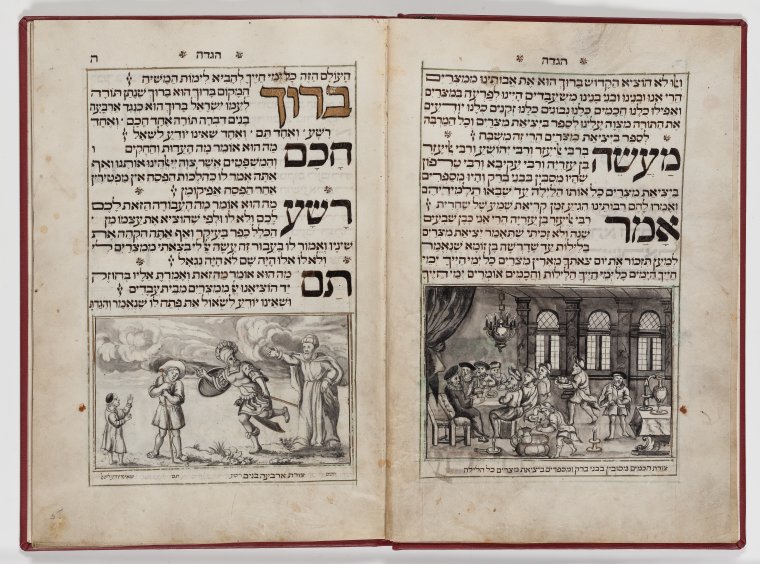 הגדה
ואלו לא הוציא הקדוש ברוך הוא את אבותינו ממצרים
הרי אנו ובנינו ובני בנינו משעבדים היינו לפרעה במצרים
ואפילו כלנו חכמים כלנו נבונים כלנו זקנים כלנו יודעים
את התורה מצוה עלינו לספר ביציאת מצרים וכל המרבה
לספר ביציאת מצרים הרי זה משבח
מעשה ברבי אליעזר ורבי יהושע ורבי אלעזר
בן עזריה ורבי עקיבא ורבי טרפון
שהיו מסבין בבני ברק והיו מספרים
ביציאת מצרים כל אותו הלילה עד שבאו תלמידיהם
ואמרו להם רבותינו הגיע זמן קריאת שמע של שחרית
אמר רבי אליעזר בן עזריה הרי אני כבן שבעים
שנה ולא זכיתי שתאמר יציאת מצרים
בלילות עד שדרשה בן זומא שנאמר
למען תזכור את יום צאתך מארץ מצרים כל ימי חייך ימי
חייך הימים כל ימי חייך הלילות והחכמים אומרים ימי חייך
צורת החכמים מסובין בבני ברק ומספרים ביציאת מצרים כל הלילה
הגדה
ה
העולם הזה כל ימי חייך להביא לימות המשיח
ברוך המקום ברוך הוא ברוך שנתן תורה
לעמו ישראל ברוך הוא כנגד ארבעה
בנים דברה תורה אחד חכם ואחד
רשע ואחד תם ואחד שאינו יודע לשאל
חכם מה הוא אומר מה העדות והחקים
והמשפטים אשר צוה יי אלהינו אותנו ואף
אתה אמר לו כהלכות הפסח אין מפטירין
אחר הפסח אפיקומן
רשע מה הוא אומר מה העבודה הזאת לכם
לכם ולא לו ולפי שהוציא את עצמו מן
הכלל כפר בעיקר ואף אתה הקהה את
שיניו ואמור לו בעבור זה עשה יי לי בצאתי ממצרים לי
ולא לו אלו היה שם לא היה נגאל
תם מה הוא אומר מה זאת ואמרת אליו בחוזק
יד הוציאנו יי ממצרים מבית עבדים
ושאינו יודע לשאול את פתח לו שנאמר והגדת
חכם
צורת ארבעה בנים
רשע
תם
שאינו יודע לשאל